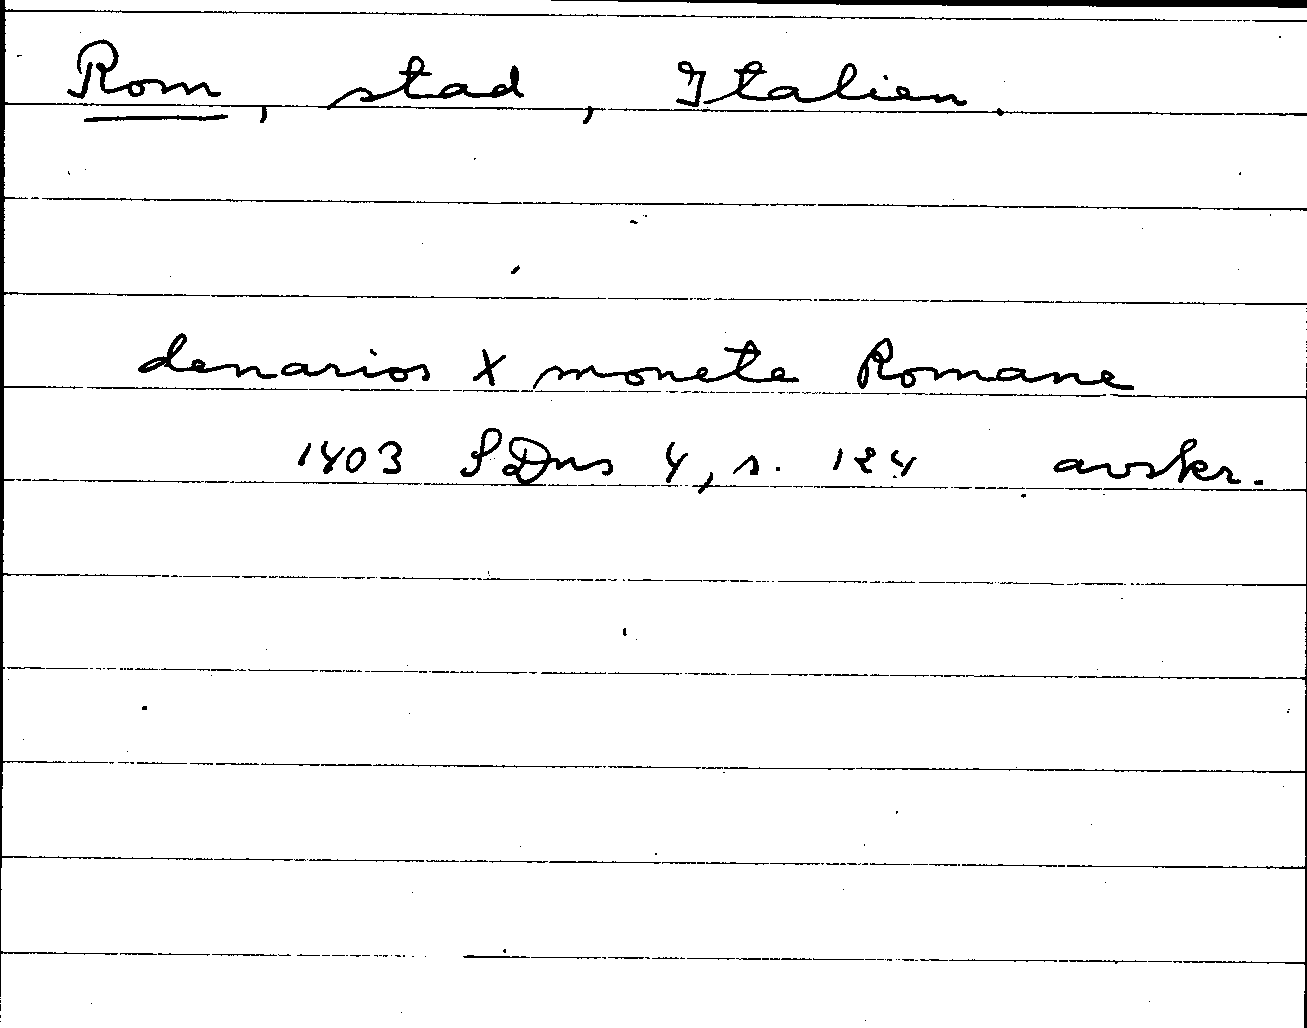 Rom, stad, Italien.
denarios X monete Romane
1403 SDns 4, s. 124 avskr.